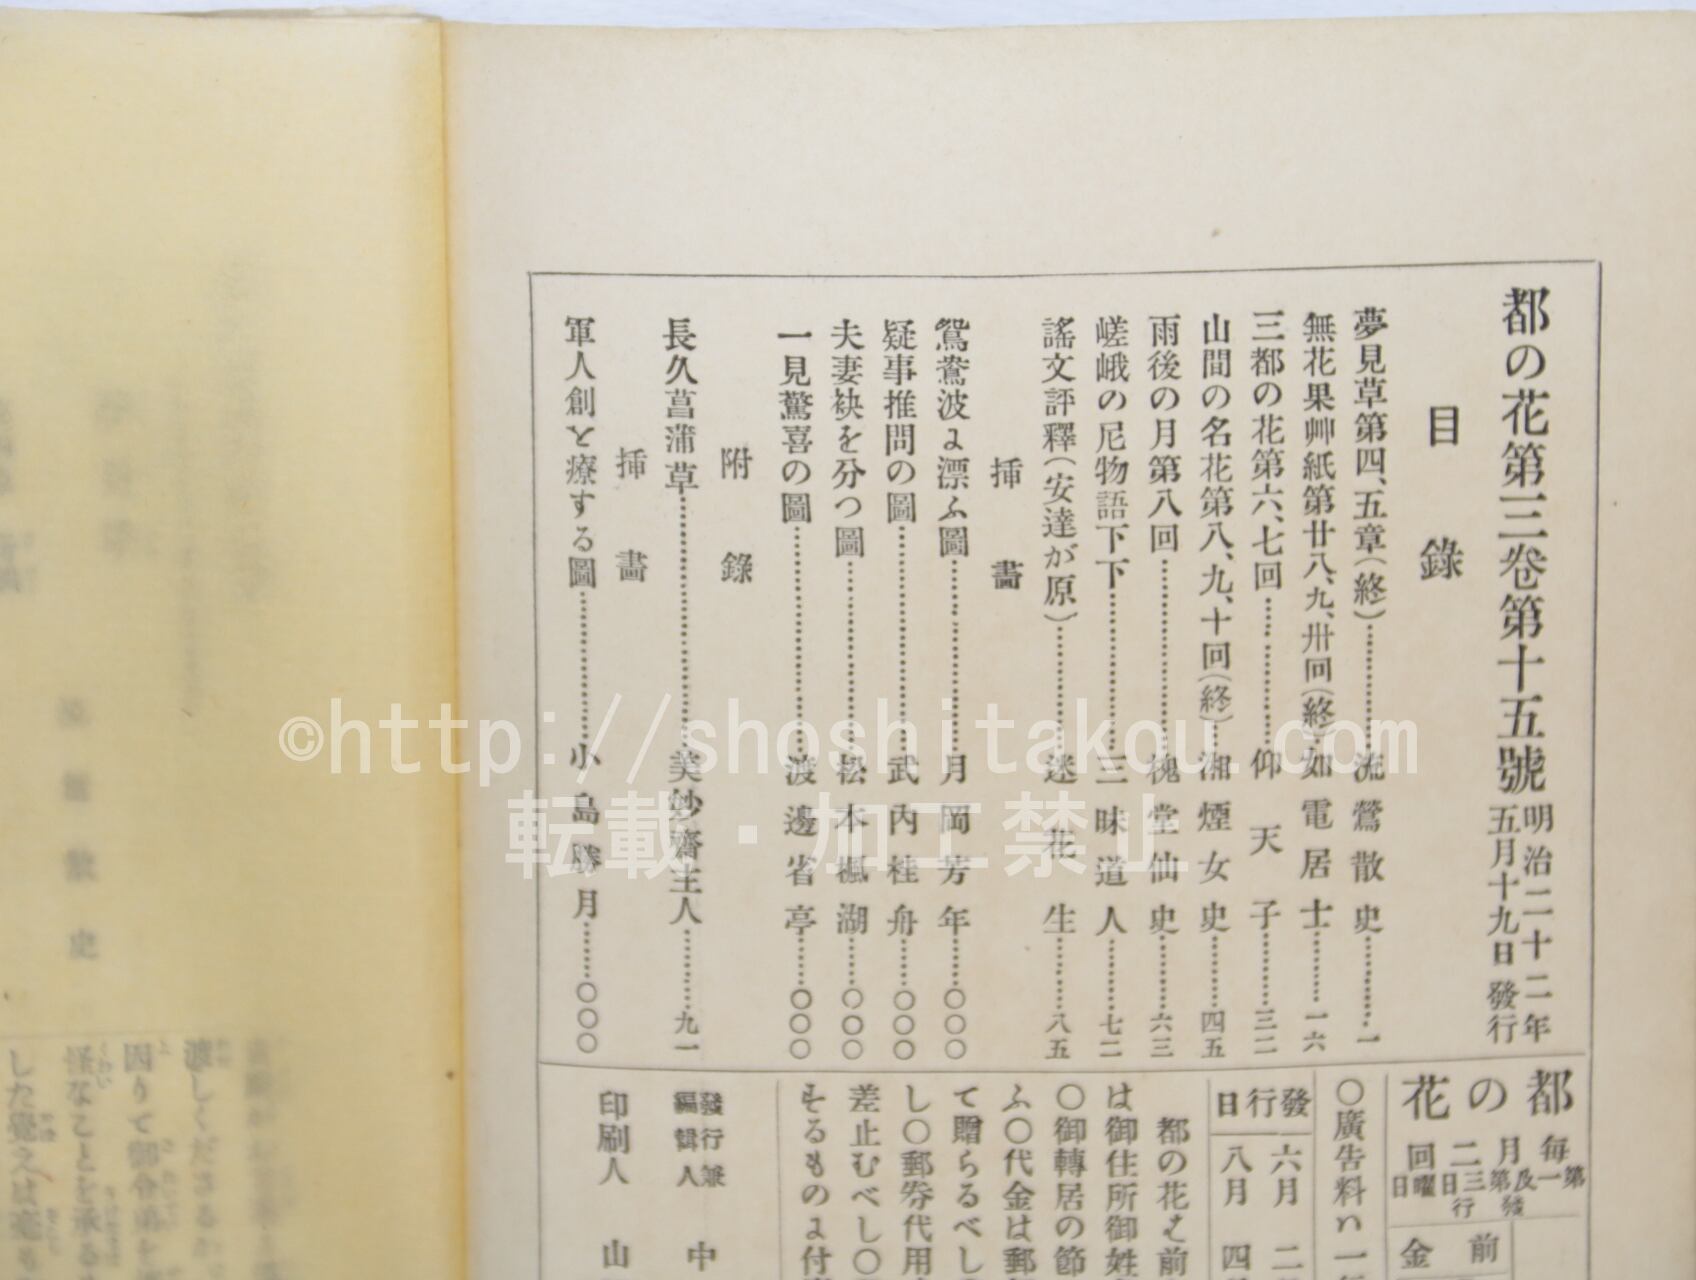 都の花第三卷第十五號
明治二十二年
五月十九日發行
目錄
夢見草第四、五章(終)…………流鶯散史…………一
無花果艸紙第廿八、九、卅回(終)…如電居士…………一六
三都の花第六、七回…………仰天子…………三二
山間の名花第八、九、十回(終)…湘煙女史…………四五
雨後の月第八回…………槐堂仙史…………六三
嵯峨の尼物語下下…………三昧道人…………七二
謠文評釋(安達が原)…………迷花生…………八五
挿畵
鴛鴦波に漂ふ圖…………月岡芳年…………〇〇〇
疑事推問の圖…………武內桂舟…………〇〇〇
夫妻袂を分つ圖…………松本楓湖…………〇〇〇
一見驚喜の圖…………渡邊省亭…………〇〇〇
附錄
長久菖蒲草…………美妙齋主人…………九一
挿畵
軍人創を療する圖…………小島勝月…………〇〇〇
都の花
每月二回
第一及第三日曜日
發行
前金
〇廣告料ハ一
發行日
六月 二
八月 四
都の花は前
は御住所御姓
〇御轉居の節
ふ〇代金は郵
て贈らるべし
し〇郵劵代用
差止むべし〇
するものに付
發行兼
編輯人 中
印刷人 山
渡しくださるか
因りて御分弟を
怪なことを承る
した覺えは毫も
©http://shoshitakou.com
転載・加工禁止